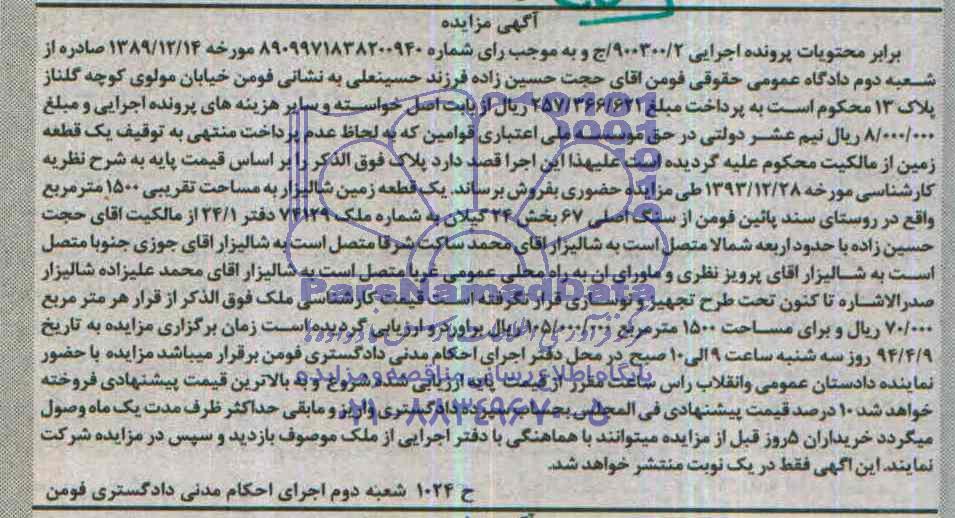 آگهی مزایده
برابر محتویات پرونده اجرایی ۹۰۰۳۰۰/۲/ج و به موجب رای شماره ۸۹۰۹۹۷۱۸۳۸۲۰۰۹۴۰ مورخه ۱۳۸۹/۱۲/۱۴ صادره از
شعبه دوم دادگاه عمومی حقوقی فومن اقای حجت حسین زاده فرزند حسینعلی به نشانی فومن خیابان مولوی کوچه گلناز
پلاک ۱۳ محکوم است به پرداخت مبلغ ۲۵۷/۳۶۶/۶۲۱ ریال از بابت اصل خواسته و سایر هزینه های پرونده اجرایی و مبلغ
۸/۰۰۰/۰۰۰ ریال نیم عشر دولتی در حق موسسه ملی اعتباری قوامین که به لحاظ عدم پرداخت منتهی به توقیف یک قطعه
زمین از مالکیت محکوم علیه گردیده است علیهذا این اجرا قصد دارد پلاک فوق الذکر را بر اساس قیمت پایه به شرح نظریه
کارشناسی مورخه ۱۳۹۳/۱۲/۲۸ طی مزایده حضوری بفروش برساند. یک قطعه زمین شالیزار به مساحت تقریبی ۱۵۰۰ مترمربع
واقع در روستای سند پائین فومن از سنگ اصلی ۶۷ بخش ۲۴ گیلان به شماره ملک ۷۴۱۲۹ دفتر ۲۴/۱ از مالکیت اقای حجت
حسین زاده با حدود اربعه شمالا متصل است به شالیزار اقای محمد ساکت شرقا متصل است به شالیزار اقای جوزی جنوبا متصل
است به شالیزار اقای پرویز نظری و ماورای ان به راه محلی عمومی غربا متصل است به شالیزار اقای محمد علیزاده شالیزار
صدرالاشاره تا کنون تحت طرح تجهیز و نوسازی قرار نگرفته است قیمت کارشناسی ملک فوق الذکر از قرار هر متر مربع
۷۰/۰۰۰ ریال و برای مساحت ۱۵۰۰ مترمربع ۱۰۵/۰۰۰/۰۰۰ ریال براورد و ارزیابی گردیده است زمان برگزاری مزایده به تاریخ
۹۴/۴/۹ روز سه شنبه ساعت ۹ الی ۱۰ صبح در محل دفتر اجرای احکام مدنی دادگستری فومن برقرار میباشد مزایده با حضور
نماینده دادستان عمومی وانقلاب راس ساعت مقرر از قیمت پایه ارزیابی شده شروع و به بالاترین قیمت پیشنهادی فروخته
خواهد شد ۱۰ درصد قیمت پیشنهادی فی المجلس بحساب سپرده دادگستری واریز و مابقی حداکثر ظرف مدت یک ماه وصول
میگردد خریداران ۵ روز قبل از مزایده میتوانند با هماهنگی با دفتر اجرایی از ملک موصوف بازدید و سپس در مزایده شرکت
نمایند. این اگهی فقط در یک نوبت منتشر خواهد شد.
ح ۱۰۲۴ شعبه دوم اجرای احکام مدنی دادگستری فومن
ParsNamadData
پایگاه اطلاع رسانی مناقصه و مزایده
۰۲۱-۸۸۳۴۹۶۷۰-۵